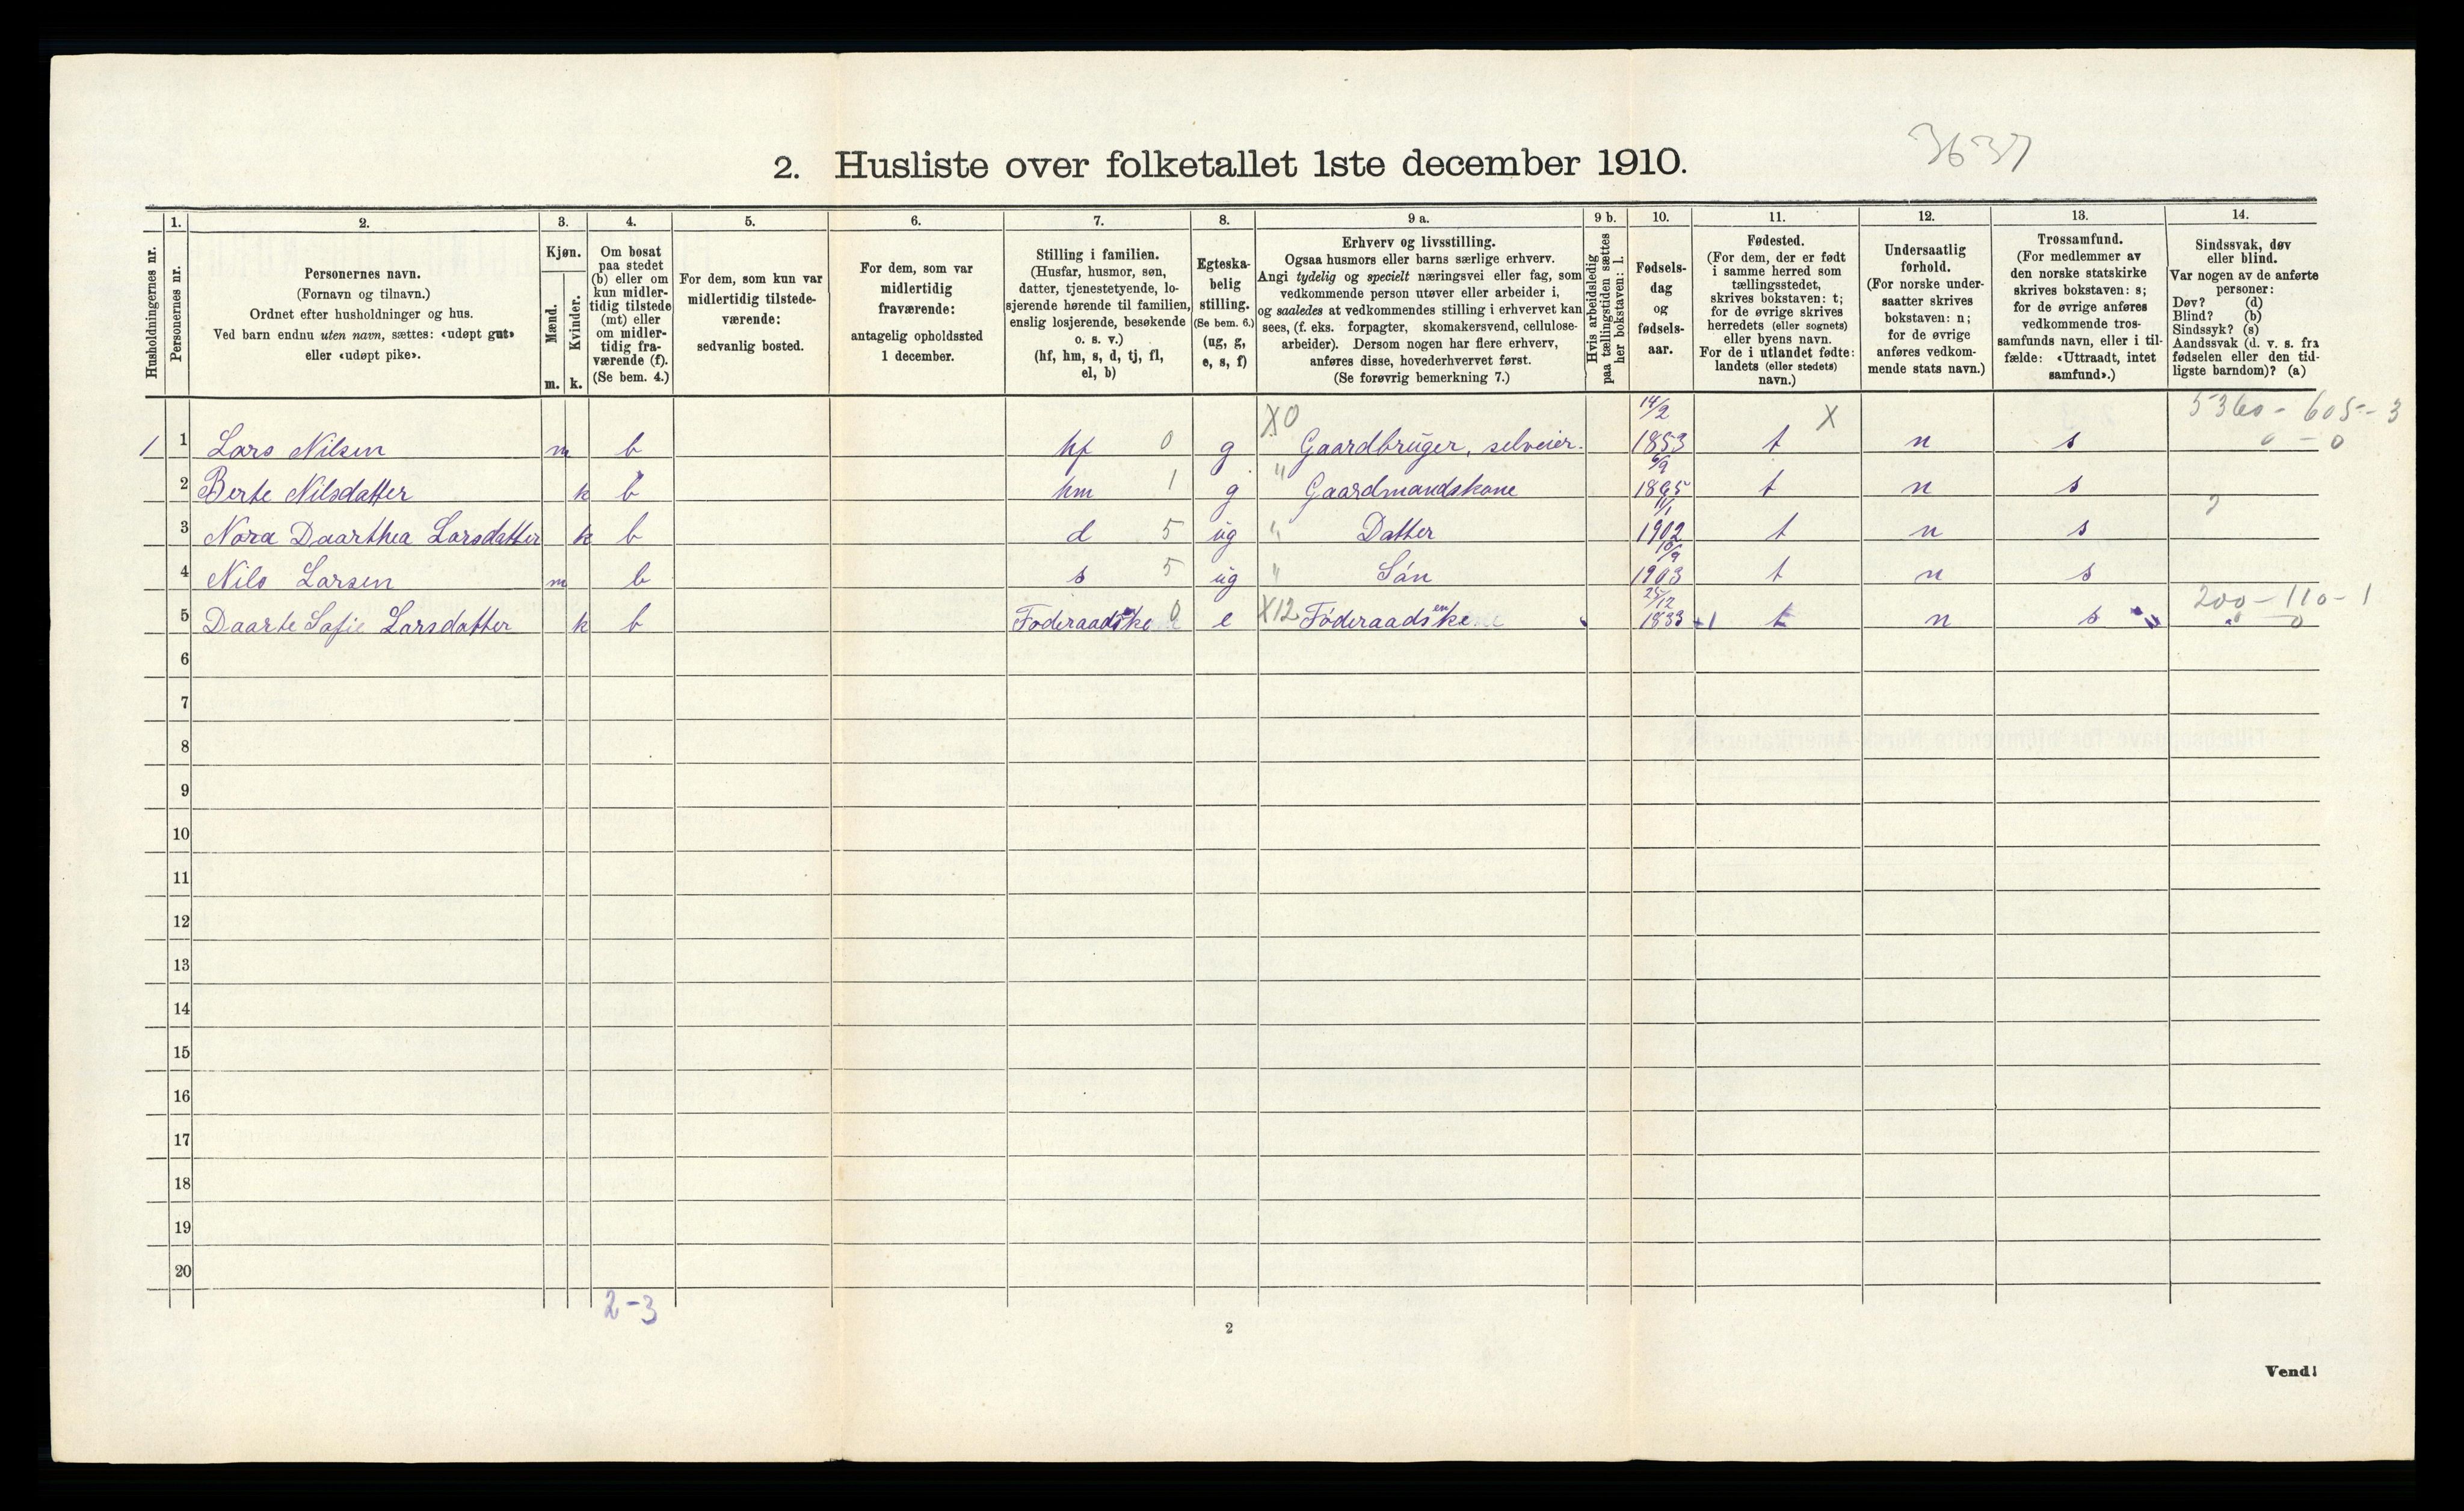 3637
2. Husliste over folketallet 1ste december 1910.
Husholdningernes nr.
1.
Personernes nr.
2.
Personernes navn.
(Fornavn og tilnavn.)
Ordnet efter husholdninger og hus.
Ved barn endnu uten navn, sættes: «udøpt gut»
eller «udøpt pike».
3.
Kjøn.
Mænd.
Kvinder.
m. k.
4.
Om bosat
paa stedet
(b) eller om
kun midler-
tidig tilstede
(mt) eller
om midler-
tidig fra-
værende (f).
(Se bem. 4.)
5.
For dem, som kun var
midlertidig tilstede-
værende:
sedvanlig bosted.
6.
For dem, som var
midlertidig
fraværende:
antagelig opholdssted
1 december.
7.
Stilling i familien.
(Husfar, husmor, søn,
datter, tjenestetyende, lo-
sjerende hørende til familien,
enslig losjerende, besøkende
o. s. v.)
(hf, hm, s, d, tj, fl,
el, b)
8.
Egteska-
belig
stilling.
(Se bem. 6.)
(ug, g,
e, s, f)
9 a.
Erhverv og livsstilling.
Ogsaa husmors eller barns særlige erhverv.
Angi tydelig og specielt næringsvei eller fag, som
vedkommende person utøver eller arbeider i,
og saaledes at vedkommendes stilling i erhvervet kan
sees, (f. eks. forpagter, skomakersvend, cellulose-
arbeider). Dersom nogen har flere erhverv,
anføres disse, hovederhvervet først.
(Se forøvrig bemerkning 7.)
9 b.
Hvis arbeidsledig
paa tællingstiden sættes
her bokstaven: l.
10.
Fødsels-
dag
og
fødsels-
aar.
11.
Fødested.
(For dem, der er født
i samme herred som
tællingsstedet,
skrives bokstaven: t;
for de øvrige skrives
herredets (eller sognets)
eller byens navn.
For de i utlandet fødte:
landets (eller stedets)
navn.)
12.
Undersaatlig
forhold.
(For norske under-
saatter skrives
bokstaven: n;
for de øvrige
anføres vedkom-
mende stats navn.)
13.
Trossamfund.
(For medlemmer av
den norske statskirke
skrives bokstaven: s;
for de øvrige anføres
vedkommende tros-
samfunds navn, eller i til-
fælde: «Uttraadt, intet
samfund».)
14.
Sindssvak, døv
eller blind.
Var nogen av de anførte
personer:
Døv? (d)
Blind? (b)
Sindssyk? (s)
Aandssvak (d. v. s. fra
fødselen eller den tid-
ligste barndom)? (a)
1 1 Lars Nilsen m b hf 0 g X0 Gaardbruger, selveier. 14/2 1853 t X n s 5360 - 605 - 3 0 - 0
2 Berte Nilsdatter k b hm 1 g " Gaardmandskone 6/9 1865 t n s
3 Nora Daarthea Larsdatter k b d 5 ug " Datter 11/1 1902 t n s
4 Nils Larsen m b s 5 ug " Sön 10/9 1903 t n s
5 Daarte Sofie Larsdatter k b Foderaadsenke 0 e X12 Föderaadsenke 25/12 1833 +1 t n s 200 - 110 - 1 0
6
7
8
9
10
11
12
13
14
15
16
17
18
19
20
2-3
2
Vend!